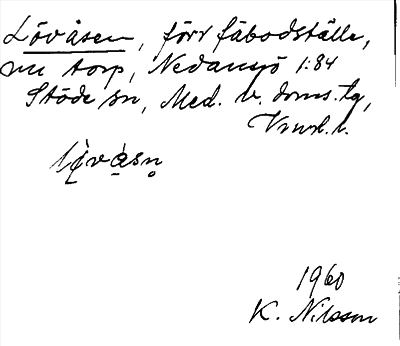 Lövåsen, förr fäbodställe,
nu torp, Nedansjö 1:84
Stöde sn, Med. v. doms. tg,
l
1960
K. Nilsson